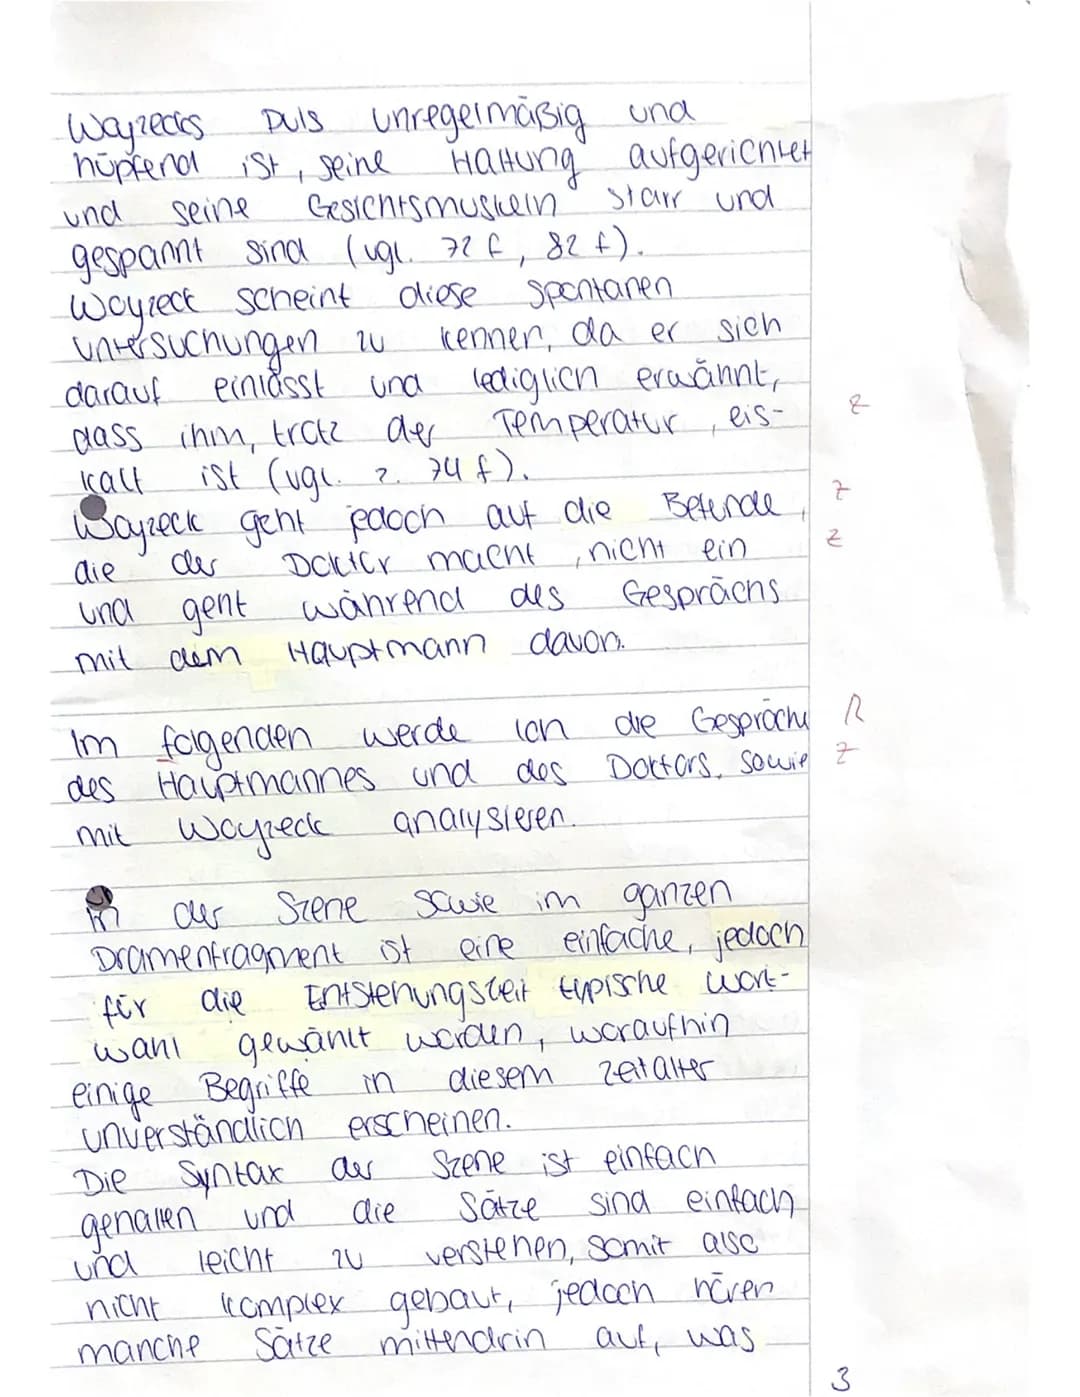 Woyzecks Puls unregelmäßig und
hüpfend ist, seine Haltung aufgerichtet
und seine Gesichtsmuskeln starr und
gespannt sind (vgl. 72 f, 82 f).
Woyzeck scheint diese spontanen
Untersuchungen zu kennen, da er sich
darauf einlässt und lediglich erwähnt,
dass ihm, trotz der Temperatur, eis-
Z
kalt ist (vgl. Z. 74 f).
Woyzeck geht jedoch auf die Befunde,
Z
die der Doktor macht, nicht ein
Z
und geht während des Gesprächs
mit dem Hauptmann davon.
Im folgenden werde ich die Gespräche
R
des Hauptmannes und des Doktors, sowie
Z
mit Woyzeck analysieren.
In der Szene sowie im ganzen
Dramenfragment ist eine einfache, jedoch
für die Entstehungszeit typische Wort-
wahl gewählt worden, woraufhin
einige Begriffe in diesem Zeitalter
unverständlich erscheinen.
Die Syntax der Szene ist einfach
gehalten und die Sätze sind einfach
und leicht zu verstehen, somit also
nicht komplex gebaut, jedoch hören
manche Sätze mittendrin auf, was
3